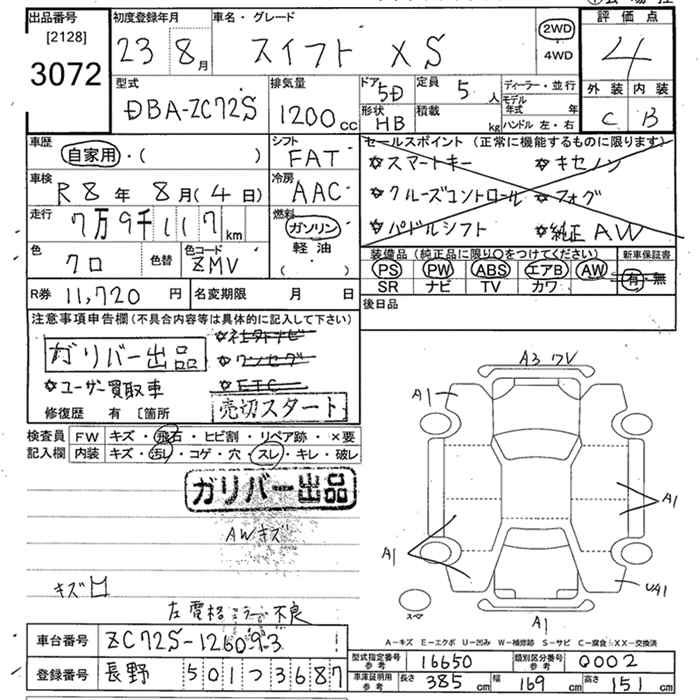 出品番号 初度登録年月 車名・グレード 評価点
[2128] 23 8月 スイフト XS 2WD 4WD 4
3072
型式 排気量 ドア 5D 定員 5人 ディーラー・並行 外装 内装
DBA-ZC72S 1200cc 形状 HB 積載 kg モデル年式 年 C B
ハンドル 左・右
車歴 シフト セールスポイント(正常に機能するものに限ります)
自家用・( ) FAT ☆スマートキー ☆キセノン
車検 冷房
R8年 8月(4日) AAC ☆クルーズコントロール ☆フォグ
走行 燃料
7万9千117km ガソリン ☆パドルシフト ☆純正AW
軽油
( )
色 色替 色コード 装備品(純正品に限り〇をつけてください) 新車保証書
クロ ZMV PS PW ABS エアB AW 有・無
SR ナビ TV カワ
R券 11,720円 名変期限 月 日 後日品
注意事項申告欄(不具合内容等は具体的に記入して下さい)
☆社外ナビ
ガリバー出品 ☆ワンセグ
☆ユーザー買取車 ☆ETC
修復歴 有 [箇所 売切スタート
検査員 FW キズ・飛石・ヒビ割・リペア跡・×要
記入欄 内装 キズ・汚レ・コゲ・穴・スレ・キレ・破レ
ガリバー出品
AWキズ
キズ
左電格ミラー不良
A3 ワV
A1
A1
A1
UA1
A1
スペア
A-キズ E-エクボ U-凹み W-補修跡 S-サビ C-腐食 XX-交換済
車台番号 ZC72S-126093
登録番号 長野 501つ3687
型式指定番号 参考 16650 類別区分番号 参考 0002
車庫証明用 参考 長さ 385cm 幅 169cm 高さ 151cm